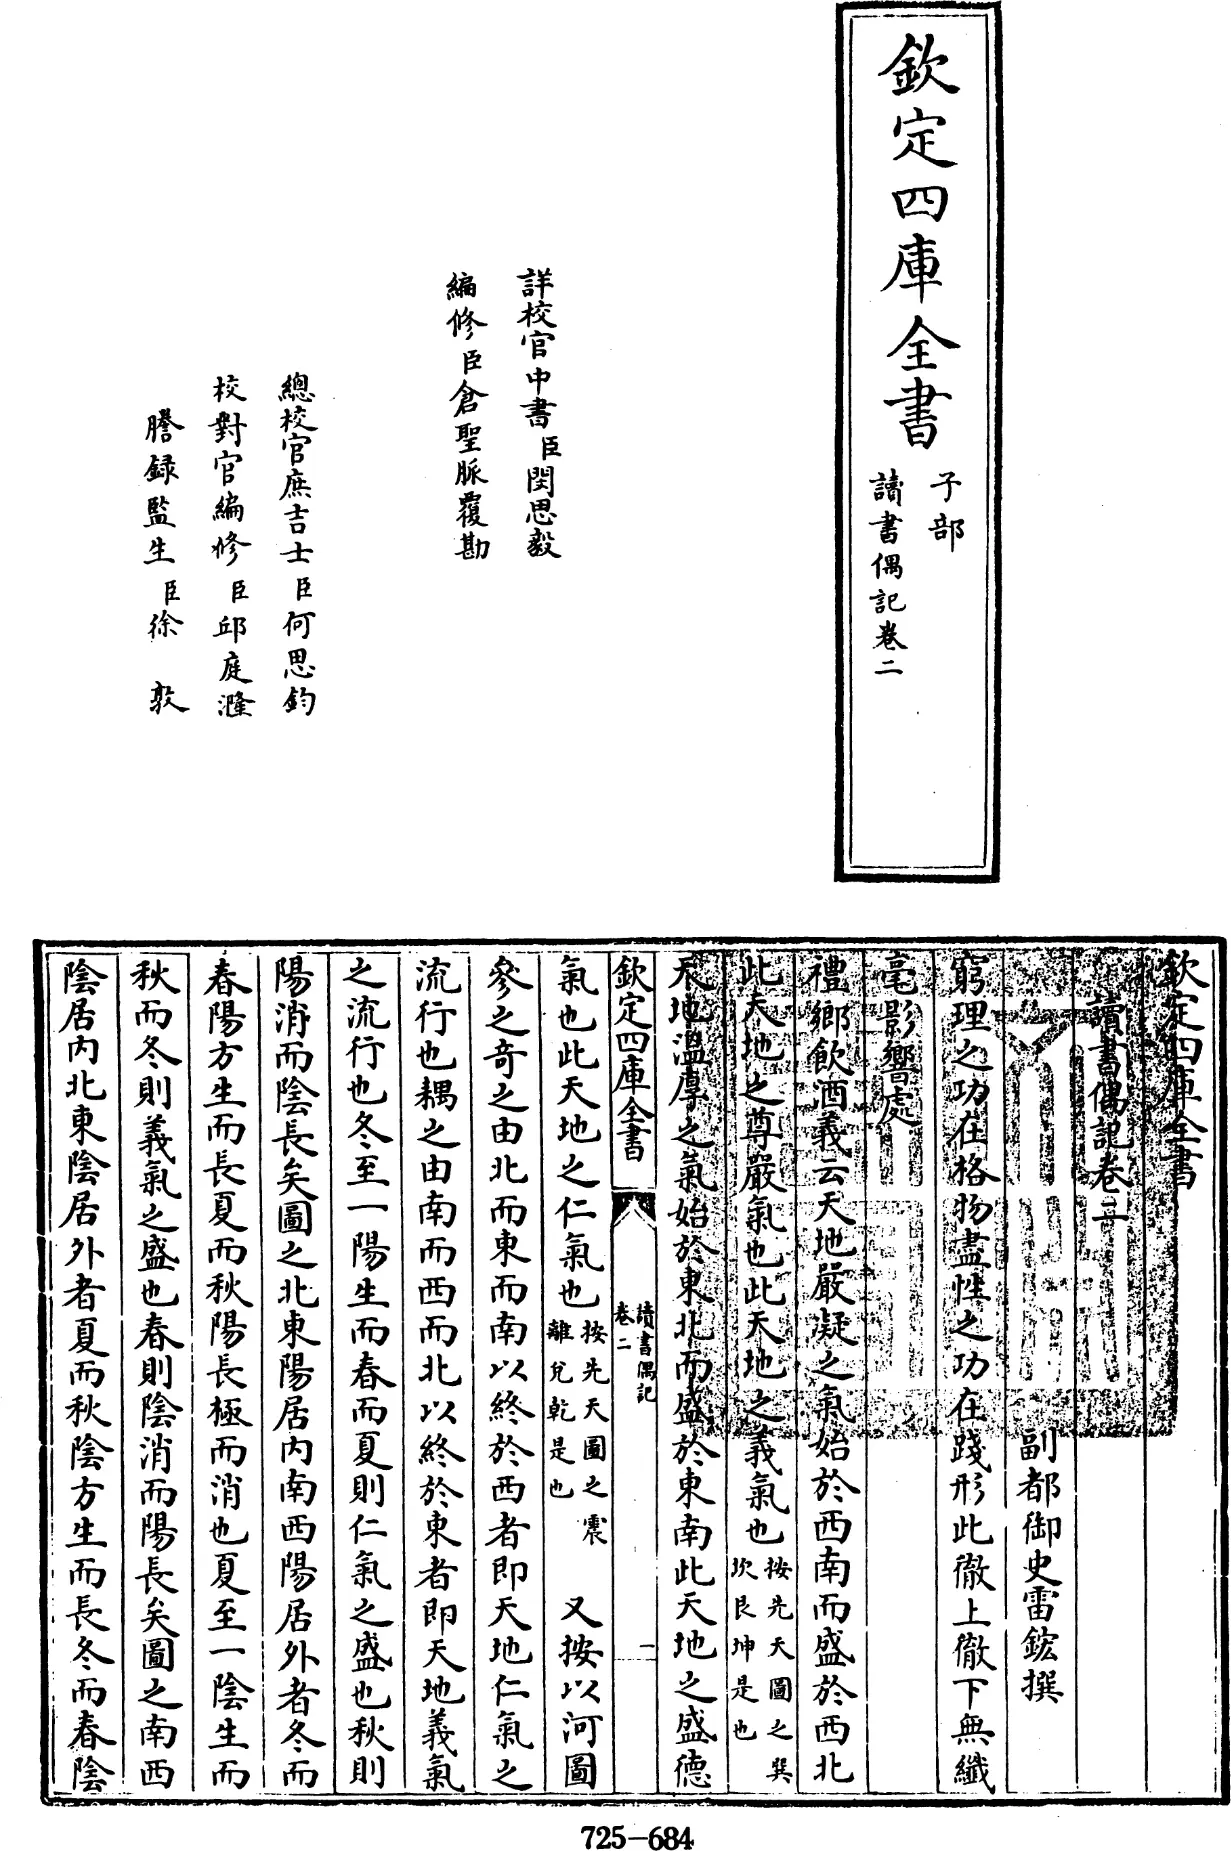 欽定四庫全書
子部
讀書偶記卷二
詳校官中書臣閔思毅
編修臣倉聖脈覆勘
總校官庶吉士臣何思鈞
校對官編修臣邱庭漋
謄錄監生臣徐敦
欽定四庫全書
讀書偶記卷二
副都御史雷鋐撰
窮理之功在格物盡性之功在踐形此徹上徹下無纖
毫影響處
禮鄉飲酒義云天地嚴凝之氣始於西南而盛於西北
此天地之尊嚴氣也此天地之義氣也按先天圖之巽
坎艮坤是也
天地溫厚之氣始於東北而盛於東南此天地之盛德
欽定四庫全書
讀書偶記
卷二
一
氣也此天地之仁氣也按先天圖之震
離兌乾是也
又按以河圖
參之奇之由北而東而南以終於西者即天地仁氣之
流行也耦之由南而西而北以終於東者即天地義氣
之流行也冬至一陽生而春而夏則仁氣之盛也秋則
陽消而陰長矣圖之北東陽居內南西陽居外者冬而
春陽方生而長夏而秋陽長極而消也夏至一陰生而
秋而冬則義氣之盛也春則陰消而陽長矣圖之南西
陰居內北東陰居外者夏而秋陰方生而長冬而春陰
725-684